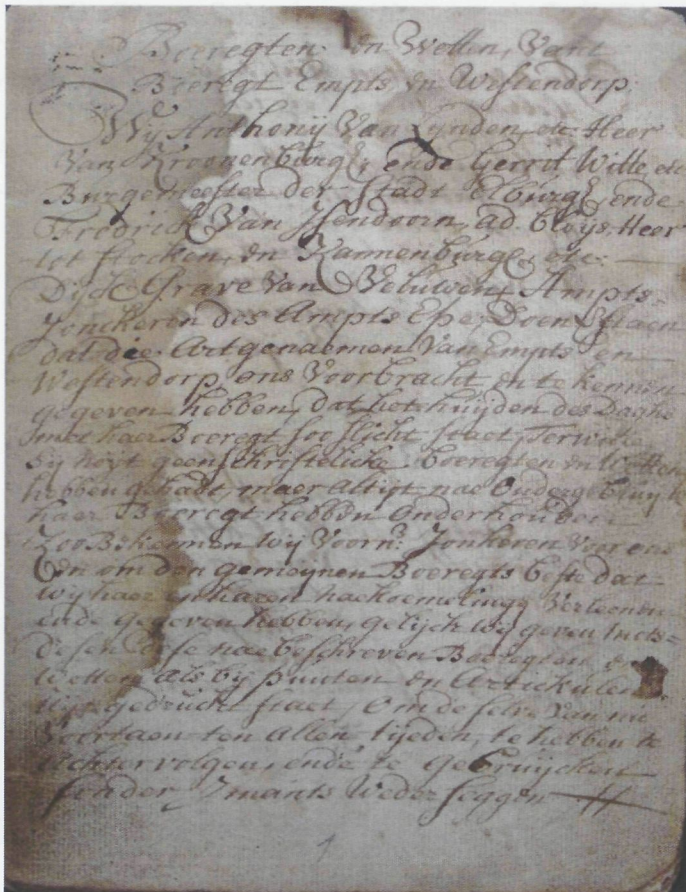 Boeregten en Wetten, Vant
Boeregt Empts en Westendorp.
Wij Anthonij Van Lynden, etc Heer
Van Kroonenburg, ende Gerrit Witte, etc
Burgemeester der Stadt Elburg, ende
Fredrick Van Isendoorn, ad bloys, Heer
tot Stocken, en Kannenburg, etc:
Dijck Grave Van Veluwen, Ampts-
Jonckeren des Ampts Epe, Doen
dat die Artgenaemen Van Empts en
Westendorp, ens Voorbracht en te kennen
gegeven hebben, dat het huijden des Daghs
met haer Boeregt soo slicht staet, Terwille
sij noyt geen schriftelicke boeregten en Wetten
hebben gehadt, maer altijt nae Ouder gebruyk
haer Boeregt hebben Onderhouden
Zoo Bekennen Wij Voorn: Jonkeren Voor ons
En om den gemeynen Boeregts beste dat
wij haer en haren nackoemelings Verleenen
ende gegeven hebben, gelijck wij geven mits-
desen dese naebeschreven Boeregten en
Wetten als by puncten en Artickulen
gedruckt staet, om de selve Van nu
Voortaen ten allen tijden, te hebben te
achtervolgen, ende te gebruijcken
sonder Imants Weder seggen
1